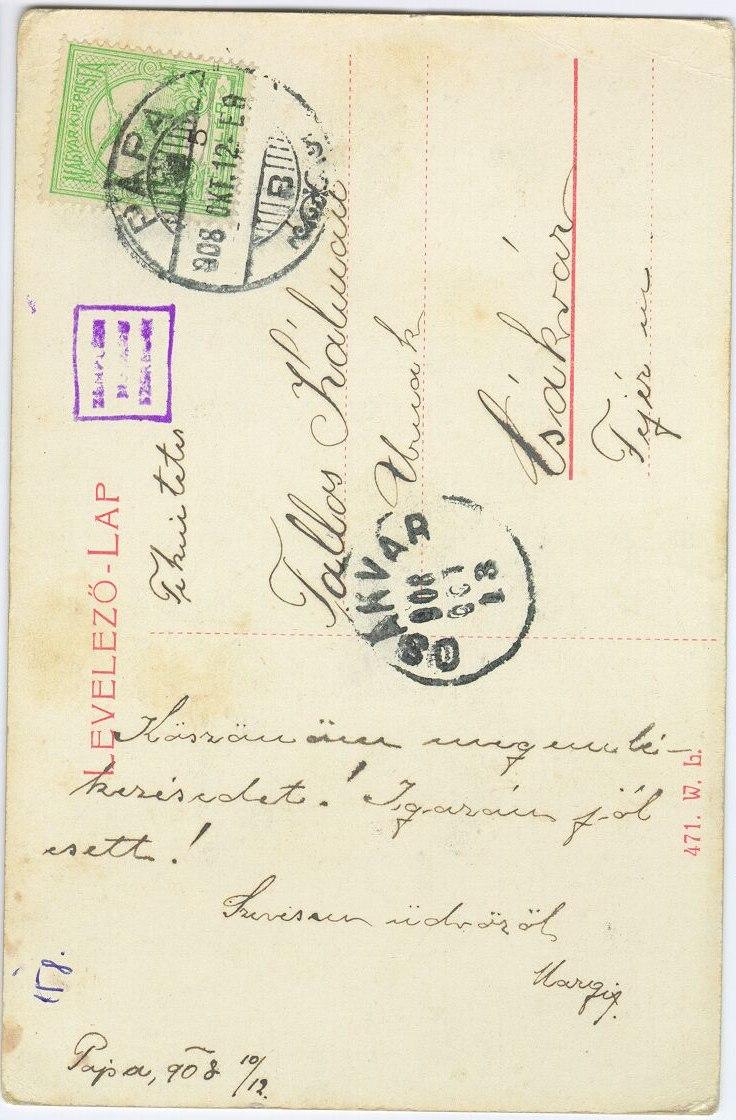 MAGYAR KIR. POSTA
PÁPA
908 OKT. 12
B
LEVELEZŐ-LAP
Tekintetes
Tallos Kálmán
Urnak
Csákvár
Fejér m
CSÁKVÁR
908
OKT
13
Köszönöm megemlé-
kezésedet! Igazán jól
esett!
Szivesen üdvözöl
Margit.
Pápa, 908 10/12.
471. W. L.